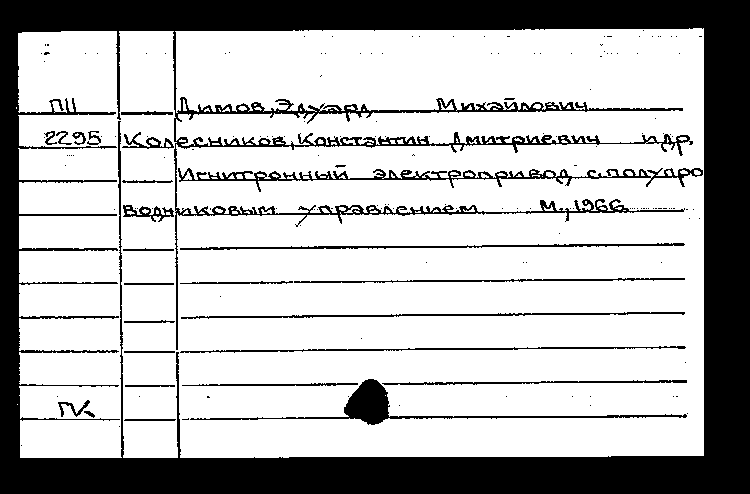 П11 Димов, Эдуард Михайлович
2295 Колесников, Константин Дмитриевич и др.
Игнитронный электропривод с полупро
водниковым управлением М., 1966
ГК